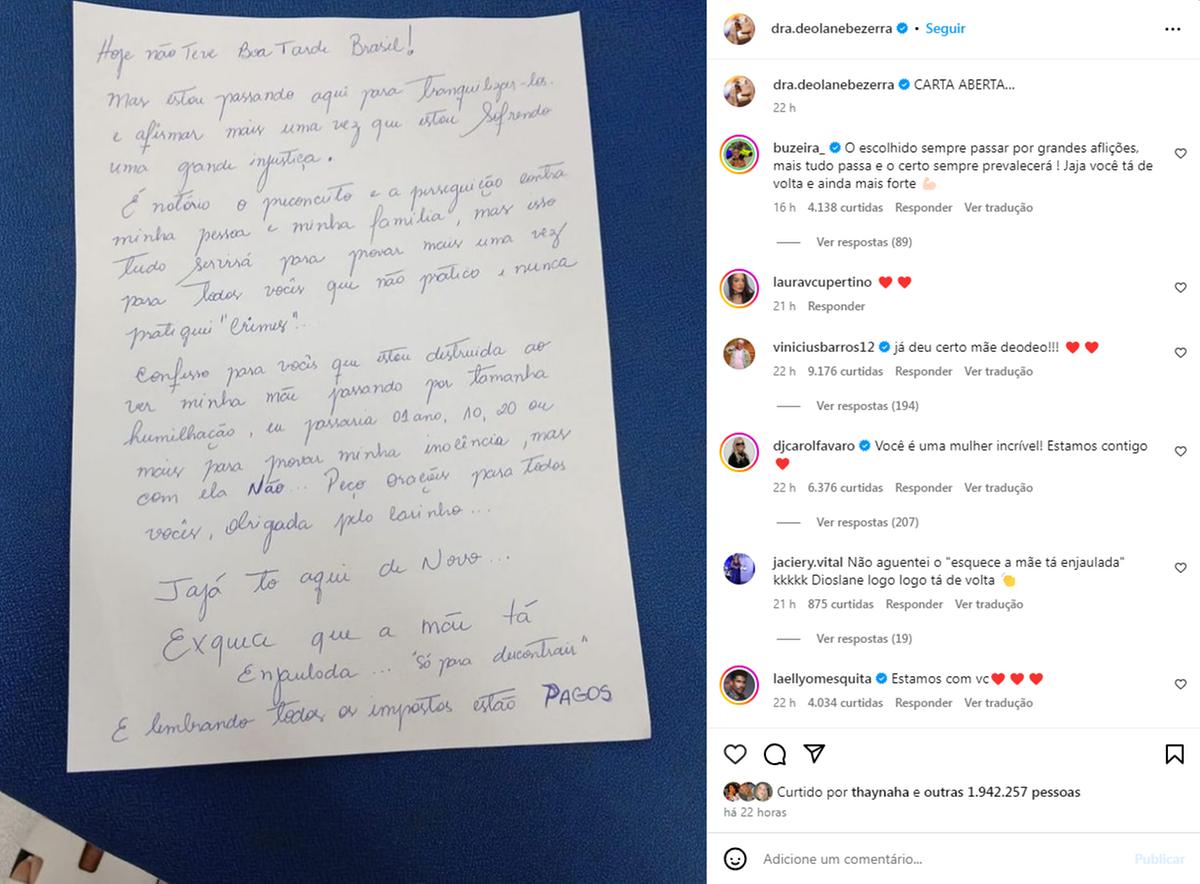 Hoje não Teve Boa Tarde Brasil!
Mas estou passando aqui para tranquilizar-los.
e afirmar mais uma vez que estou Sofrendo
uma grande injustiça.
É notório o preconceito e a perseguição contra
minha pessoa e minha família, mas isso
tudo servirá para provar mais uma vez
para todos vocês que não pratico e nunca
pratiquei "Crimes"...
Confesso para vocês que estou distruida ao
ver minha mãe passando por tamanha
humilhação, eu passaria 01 ano, 10, 20 ou
mais para provar minha inocência, mas
com ela Não... Peço orações para todos
vocês, obrigada pelo carinho...
Jajá to aqui de Novo...
Exquece que a mãe tá
Enjaulada... "só para descontrair"
E lembrando todos os impostos estão PAGOS
dra.deolanebezerra • Seguir
dra.deolanebezerra CARTA ABERTA...
22 h
buzeira_ O escolhido sempre passar por grandes aflições,
mais tudo passa e o certo sempre prevalecerá ! Jaja você tá de
volta e ainda mais forte 💪🏻
16 h 4.138 curtidas Responder Ver tradução
Ver respostas (89)
lauravcupertino ❤️ ❤️
21 h Responder
viniciusbarros12 já deu certo mãe deodeo!!! ❤️ ❤️
22 h 9.176 curtidas Responder Ver tradução
Ver respostas (194)
djcarolfavaro Você é uma mulher incrível! Estamos contigo
❤️
22 h 6.376 curtidas Responder Ver tradução
Ver respostas (207)
jaciery.vital Não aguentei o "esquece a mãe tá enjaulada"
kkkkk Dioslane logo logo tá de volta 👏
21 h 875 curtidas Responder Ver tradução
Ver respostas (19)
laellyomesquita Estamos com vc❤️ ❤️ ❤️
22 h 4.034 curtidas Responder Ver tradução
Curtido por thaynaha e outras 1.942.257 pessoas
há 22 horas
Adicione um comentário...
Publicar